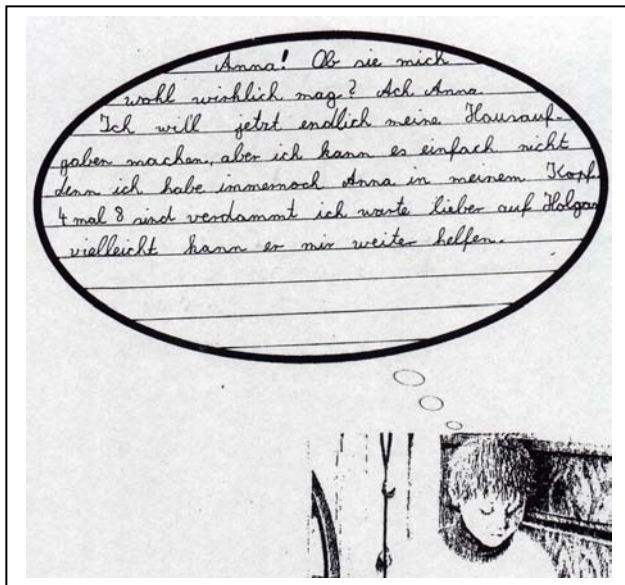 Anna! Ob sie mich
wohl wirklich mag? Ach Anna.
Ich will jetzt endlich meine Hausauf-
gaben machen, aber ich kann es einfach nicht
denn ich habe immernoch Anna in meinem Kopf.
4 mal 8 sind verdammt ich warte lieber auf Holgar
vielleicht kann er mir weiter helfen.